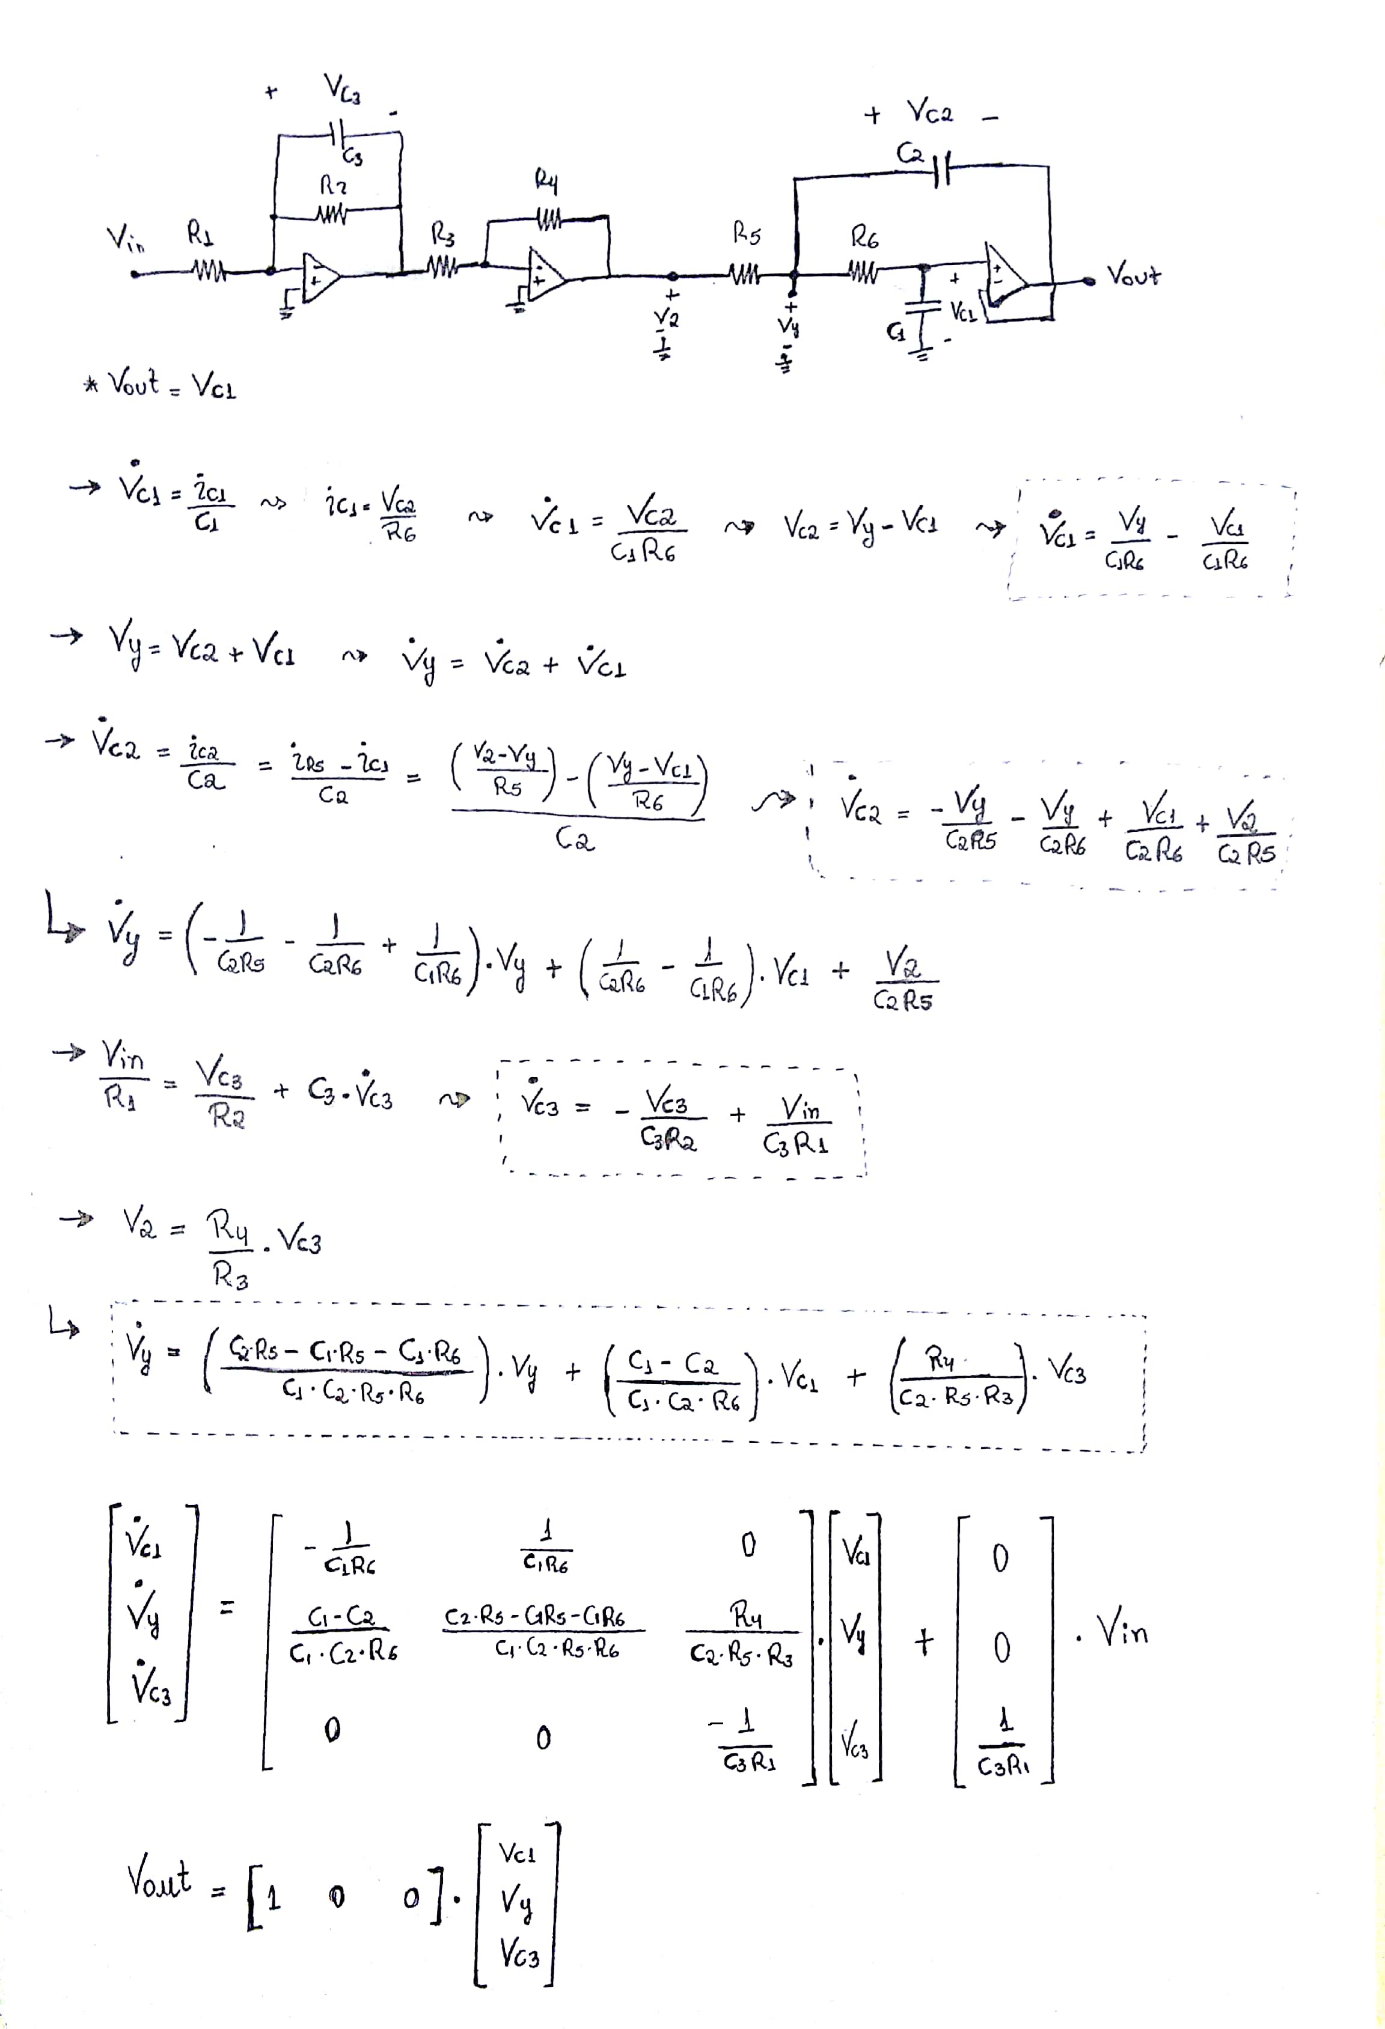 + VC3 -
C3
R2
Vin R1
R3
R4
+ V2 -
R5
+ Vy -
R6
+ VC2 -
C2
C1
+ VC1 -
Vout
* Vout = VC1
→ V̇C1 = iC1/C1 ⇝ iC1 = VC2/R6 ⇝ V̇C1 = VC2/(C1R6) ⇝ VC2 = Vy - VC1 ⇝ V̇C1 = Vy/(C1R6) - VC1/(C1R6)
→ Vy = VC2 + VC1 ⇝ V̇y = V̇C2 + V̇C1
→ V̇C2 = iC2/C2 = (iR5 - iC1)/C2 = ((V2-Vy)/R5) - ((Vy-VC1)/R6) / C2 ⇝ V̇C2 = - Vy/(C2R5) - Vy/(C2R6) + VC1/(C2R6) + V2/(C2R5)
↳ V̇y = (- 1/(C2R5) - 1/(C2R6) + 1/(C1R6)) · Vy + (1/(C2R6) - 1/(C1R6)) · VC1 + V2/(C2R5)
→ Vin/R1 = VC3/R2 + C3 · V̇C3 ⇝ V̇C3 = - VC3/(C3R2) + Vin/(C3R1)
→ V2 = R4/R3 · VC3
↳ V̇y = ((C2·R5 - C1·R5 - C1·R6)/(C1·C2·R5·R6)) · Vy + ((C1 - C2)/(C1·C2·R6)) · VC1 + (R4/(C2·R5·R3)) · VC3
[V̇C1] = [-1/(C1R6) 1/(C1R6) 0] [VC1] + [0]
[V̇y] [(C1-C2)/(C1·C2·R6) (C2·R5-C1R5-C1R6)/(C1·C2·R5·R6) R4/(C2·R5·R3)] · [Vy] [0] · Vin
[V̇C3] [0 0 -1/(C3R1)] [VC3] [1/(C3R1)]
Vout = [1 0 0] · [VC1
Vy
VC3]